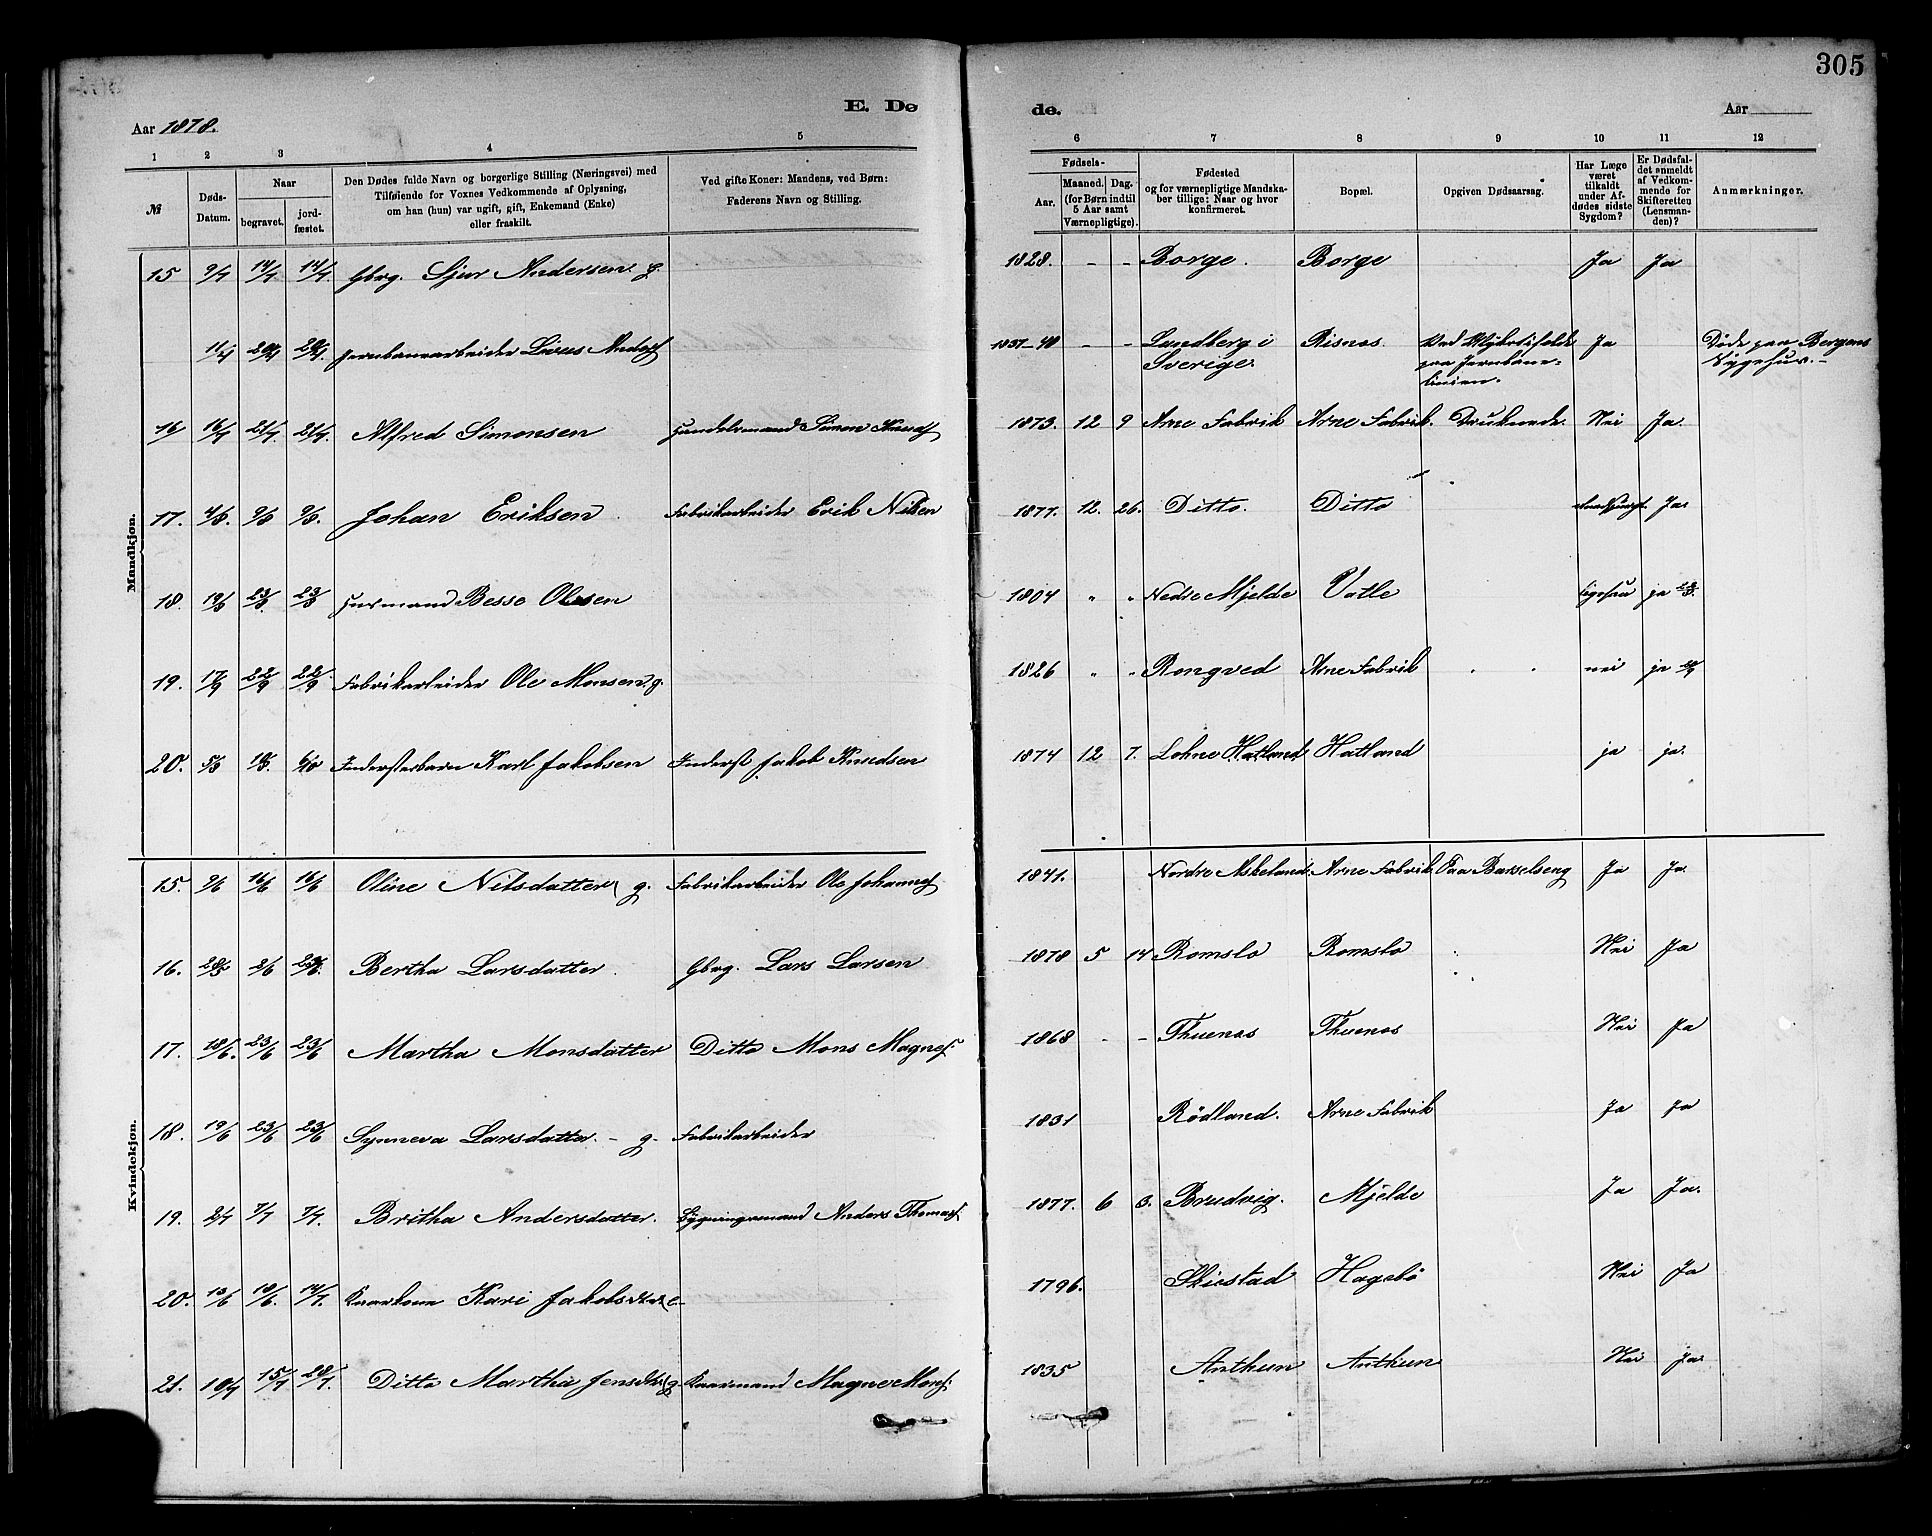 305
E. Dø
de.
Aar 1878.
Aar
1 2 3 4 5 6 7 8 9 10 11 12
№
Døds-
Datum.
Naar
begravet.
jord-
fæstet.
Den Dødes fulde Navn og borgerlige Stilling (Næringsvei) med
Tilføiende for Voxnes Vedkommende af Oplysning,
om han (hun) var ugift, gift, Enkemand (Enke)
eller fraskilt.
Ved gifte Koner: Mandens, ved Børn:
Faderens Navn og Stilling.
Fødsels-
Aar.
Maaned. Dag.
(for Børn indtil
5 Aar samt
Værnepligtige).
Fødested
og for værnepligtige Mandska-
ber tillige: Naar og hvor
konfirmeret.
Bopæl.
Opgiven Dødsaarsag.
Har Læge
været
tilkaldt
under Af-
dødes sidste
Sygdom?
Er Dødsfal-
det anmeldt
af Vedkom-
mende for
Skifteretten
(Lensman-
den)?
Anmærkninger.
Mandkjøn.
15 9/4 14/4 14/4. Gbrg. Sjur Andersen g. 1828. - - Borge. Borge Ja Ja
11/4 20/4 20/4. Jernbanearbeider - - Lundberg i Risnes. Ja Døde paa Bergens
Sverige. paa Jernbane- Sygehus.-
linien.
16 16/4 21/4 21/4. Alfred Simonsen Handelsmand Simon 1873. 12 9 Arne Fabrik Arne Fabrik. Druknede. Nei Ja.
17. 4/5. 9/5 9/5. Johan Eriksen Fabrikarbeider Erik Nilsen 1877. 12. 26. Ditto. Ditto Ja.
18. Husmand Besse Olesen 1804 " " Nedre Mjelde Vatle ligesaa ja
19. 17/9 22/9 22/9 Fabrikarbeider Ole Monsen g. 1826 " " Rongved Arne Fabrik nei ja
20. Inderstesbarn Karl Jakobsen Inderst Jakob Knudsen 1874 12 7. Lohne Hatland Hatland ja ja.
Kvindekjøn.
15 9/6 16/6 16/6 Oline Nilsdatter g. Fabrikarbeider Ole Johannes 1841. Nordre Askeland Arne Fabrik Paa Barselseng Ja Ja.
16. 28/5 2/6 Bertha Larsdatter. Gbrg. Lars Larsen 1878 5 14 Romslo Romslo Nei Ja
17. 18/6. 23/6 23/6 Martha Monsdatter Ditto Mons Magnes. 1868 - - Thuenes Thuenes Nei Ja
18. 19/6 23/6 23/6 Synneva Larsdatter. - g. Fabrikarbeider 1831 Rödland. Arne Fabrik Ja Ja
19. 2/7 7/7 7/7. Britha Andersdatter. Bygningsmand Anders Thomas. 1877. 6 3. Brudvig. Mjelde Ja Ja.
20. 13/6 18/6. 14/7. Kaarkone Kari Jakobsdtr. e. 1796. Skistad Hagebö Nei Ja
21. 10/7 15/7 28/7. Ditto Martha Jensdtr. g. Kaarmand Magne Mons. 1835 Anthun Anthun Nei Ja.